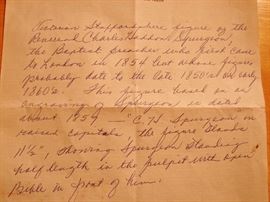 Victorian Staffordshire figure of the
Reverend Charles Haddon Spurgeon,
the Baptist preacher who first came
to London in 1854 but whose figure
probably date to the late 1850's or early
1860's. This figure based on an
engraving of Spurgeon is dated
about 1854 — "C. H. Spurgeon" in
raised capitals, the figure stands
11½", showing Spurgeon standing
half length in the pulpit with open
Bible in front of him.